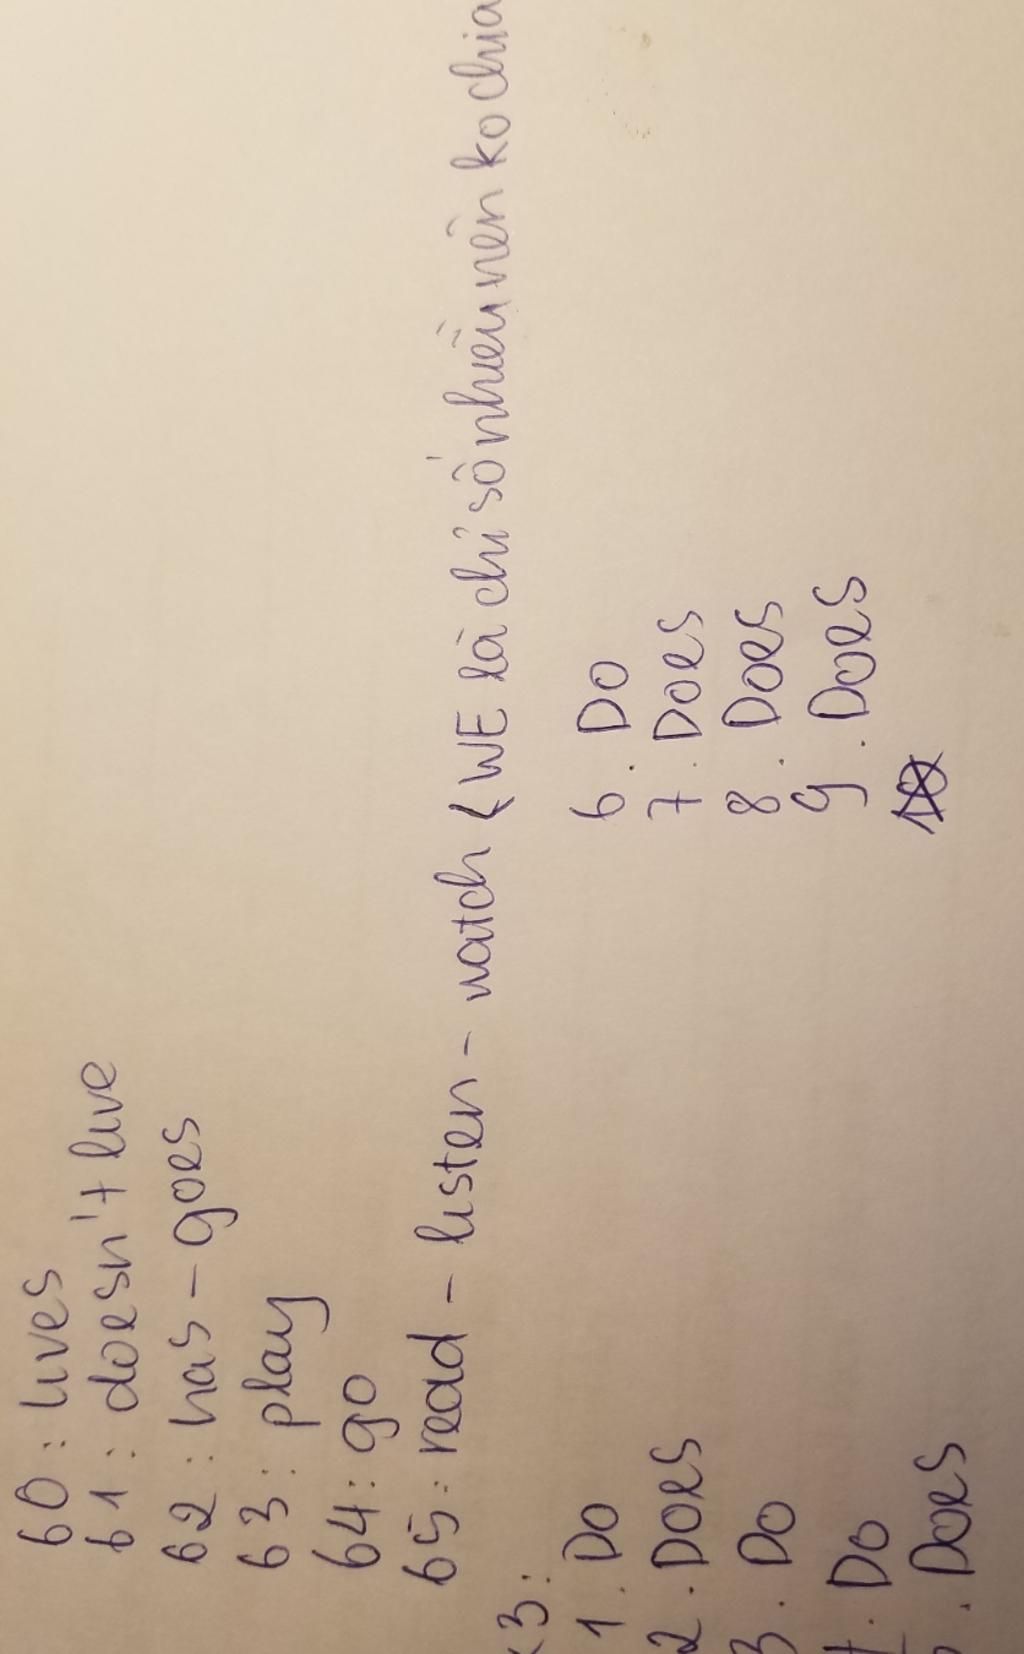 60: lives
61: doesn't live
62: has - goes
63: play
64: go
65: read - listen - watch (WE là chỉ số nhiều nên ko chia
3:
1. Do
2. Does
3. Do
. Do
. Does
6. Do
7. Does
8. Does
9. Does